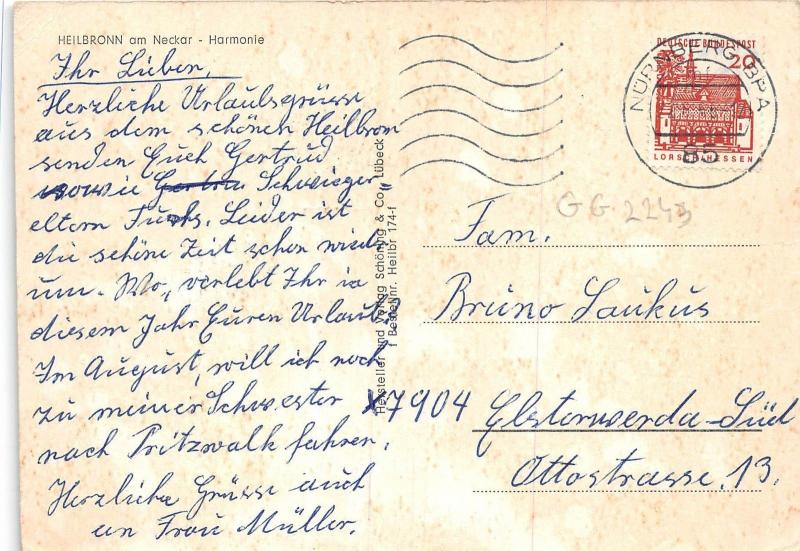 HEILBRONN am Neckar - Harmonie
Ihr Lieben,
Herzliche Urlaubsgrüsse
aus dem schönen Heilbronn
senden Euch Gertrud
sowie Schwieger
eltern Fuchs. Leider ist
die schöne Zeit schon wieder
um. Wo, verlebt Ihr in
diesem Jahr Euren Urlaub?
Im August, will ich noch
zu meiner Schwester
nach Pritzwalk fahren.
Herzliche Grüsse auch
an Frau Müller.
Hersteller und Verlag Schöning & Co., Lübeck
f Bestellnr. Heilbr 174-f
DEUTSCHE BUNDESPOST
20
LORSCH/HESSEN
NÜRNBERG BPA
85
GG 2243
Fam.
Bruno Laukus
X7904 Elsterwerda-Süd
Ottostrasse 13.